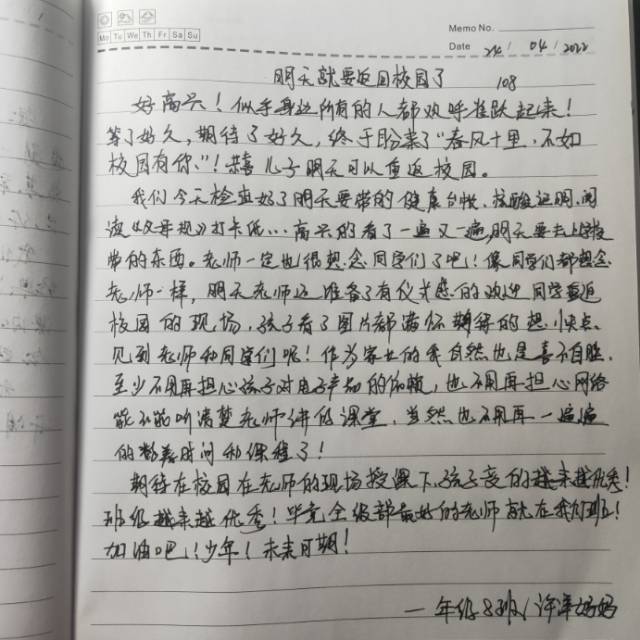 Mo Tu We Th Fr Sa Su
Memo No.
Date 24 / 04 / 2022
明天就要返回校园了 108
好高兴！似乎身边所有的人都欢呼雀跃起来！
等了好久，期待了好久，终于盼来了“春风十里，不如
校园有你”！恭喜儿子明天可以重返校园。
我们今天检查好了明天要带的健康台账、核酸证明、阅
读《父母规》打卡纸…高兴的看了一遍又一遍，明天要去上学
带的东西。老师一定也很想念同学们了吧！像同学们都想念
老师一样，明天老师还准备了有仪式感的欢迎同学重返
校园的现场，孩子看了图片都满怀期待的想快点
见到老师和同学们呢！作为家长的我自然也是喜不自胜，
至少不用再担心孩子对电子产品的依赖，也不用再担心网络
能不能听清楚老师讲的课堂，当然也不用再一遍遍
的数着时间和课程了！
期待在校园在老师的现场授课下，孩子变的越来越优秀！
班级越来越优秀！毕竟全级部最好的老师就在我们班！
加油吧！少年！未来可期！
一年级8班
妈妈